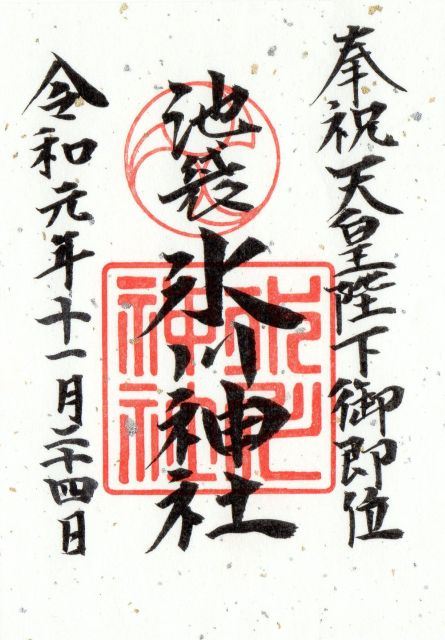 奉祝天皇陛下御即位
池袋氷川神社
氷川神社
令和元年十一月二十四日